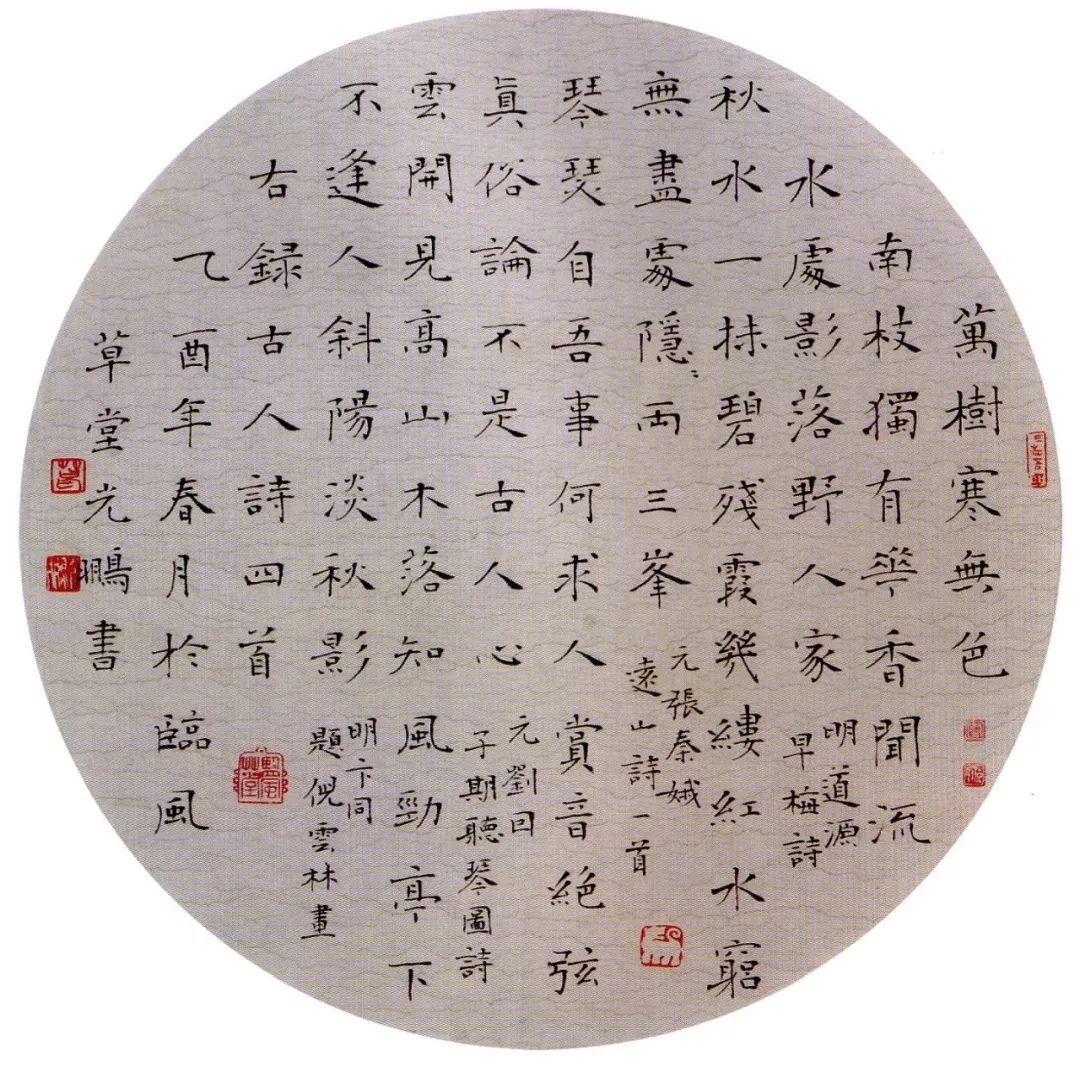 萬樹寒無色
南枝獨有華香聞流
水處影落野人家
明道源
早梅詩
秋水一抹碧殘霞幾縷紅水窮
無盡處隱〻兩三峯
元張秦娥
遠山詩一首
琴瑟自吾事何求人賞音絕弦
眞俗論不是古人心
元劉囙
子期聽琴圖詩
雲開見高山木落知風勁亭下
不逢人斜陽淡秋影
明卞同
題倪雲林畫
右録古人詩四首
乙酉年春月於臨風
草堂光鵬書